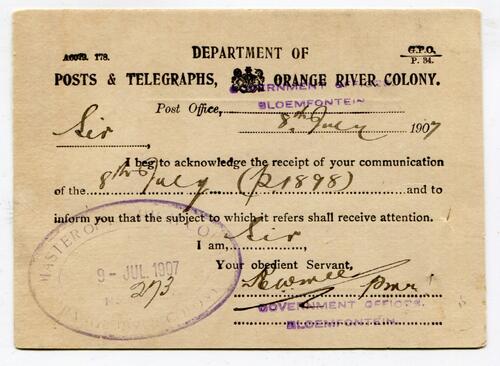 ACCTS. 178.
DEPARTMENT OF
G.P.O.
P. 34.
POSTS & TELEGRAPHS, ORANGE RIVER COLONY.
GOVERNMENT OFFICES.
Post Office,
BLOEMFONTEIN
8th July 1907
Sir
I beg to acknowledge the receipt of your communication
of the 8th July (P1898) and to
inform you that the subject to which it refers shall receive attention.
I am, Sir,
Your obedient Servant,
MASTER OF
9 - JUL. 1907
273
GOVERNMENT OFFICES.
BLOEMFONTEIN.